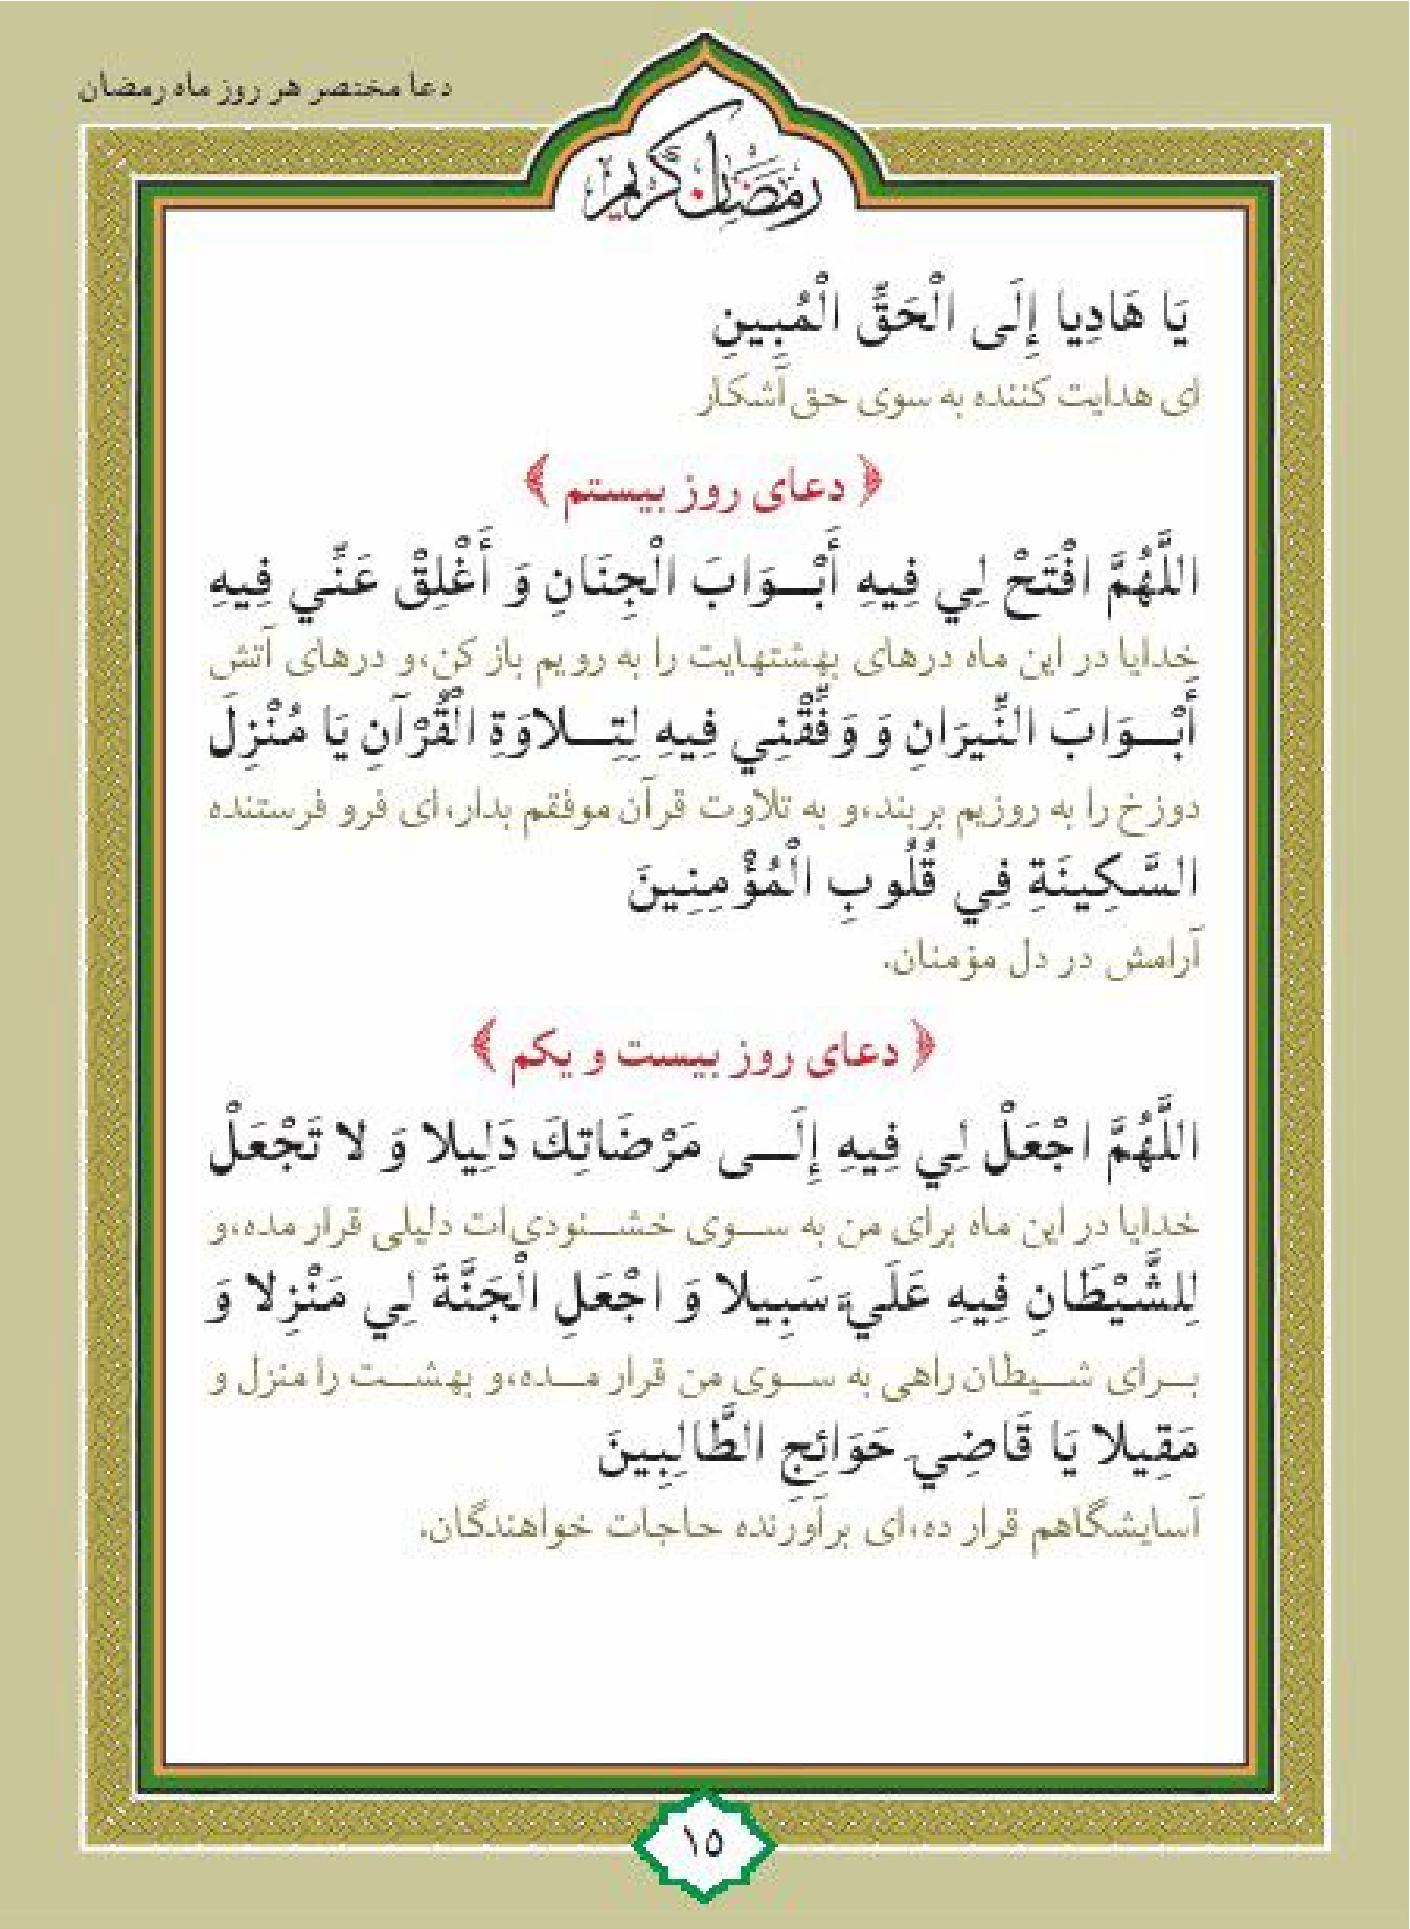 دعا مختصر هر روز ماه رمضان
رمضان كريم
يَا هَادِيا إِلَى الْحَقِّ الْمُبِينِ
ای هدایت کننده به سوی حق آشکار
﴿ دعای روز بیستم ﴾
اللَّهُمَّ افْتَحْ لِي فِيهِ أَبْـوَابَ الْجِنَانِ وَ أَغْلِقْ عَنِّي فِيهِ
خدایا در این ماه درهای بهشتهایت را به رویم باز کن،و درهای آتش
أَبْـوَابَ النِّيرَانِ وَ وَفِّقْنِي فِيهِ لِتِـلاوَةِ الْقُرْآنِ يَا مُنْزِلَ
دوزخ را به روزیم بربند،و به تلاوت قرآن موفقم بدار،ای فرو فرستنده
السَّكِينَةِ فِي قُلُوبِ الْمُؤْمِنِينَ
آرامش در دل مؤمنان.
﴿ دعای روز بیست و یکم ﴾
اللَّهُمَّ اجْعَلْ لِي فِيهِ إِلَـى مَرْضَاتِكَ دَلِيلا وَ لا تَجْعَلْ
خدایا در این ماه برای من به سـوی خشـنودی‌ات دلیلی قرار مده،و
لِلشَّيْطَانِ فِيهِ عَلَيَّ سَبِيلا وَ اجْعَلِ الْجَنَّةَ لِي مَنْزِلا وَ
بـرای شـیطان راهی به سـوی من قرار مـده،و بهشـت را منزل و
مَقِيلا يَا قَاضِيَ حَوَائِجِ الطَّالِبِينَ
آسایشگاهم قرار ده،ای برآورنده حاجات خواهندگان.
١٥